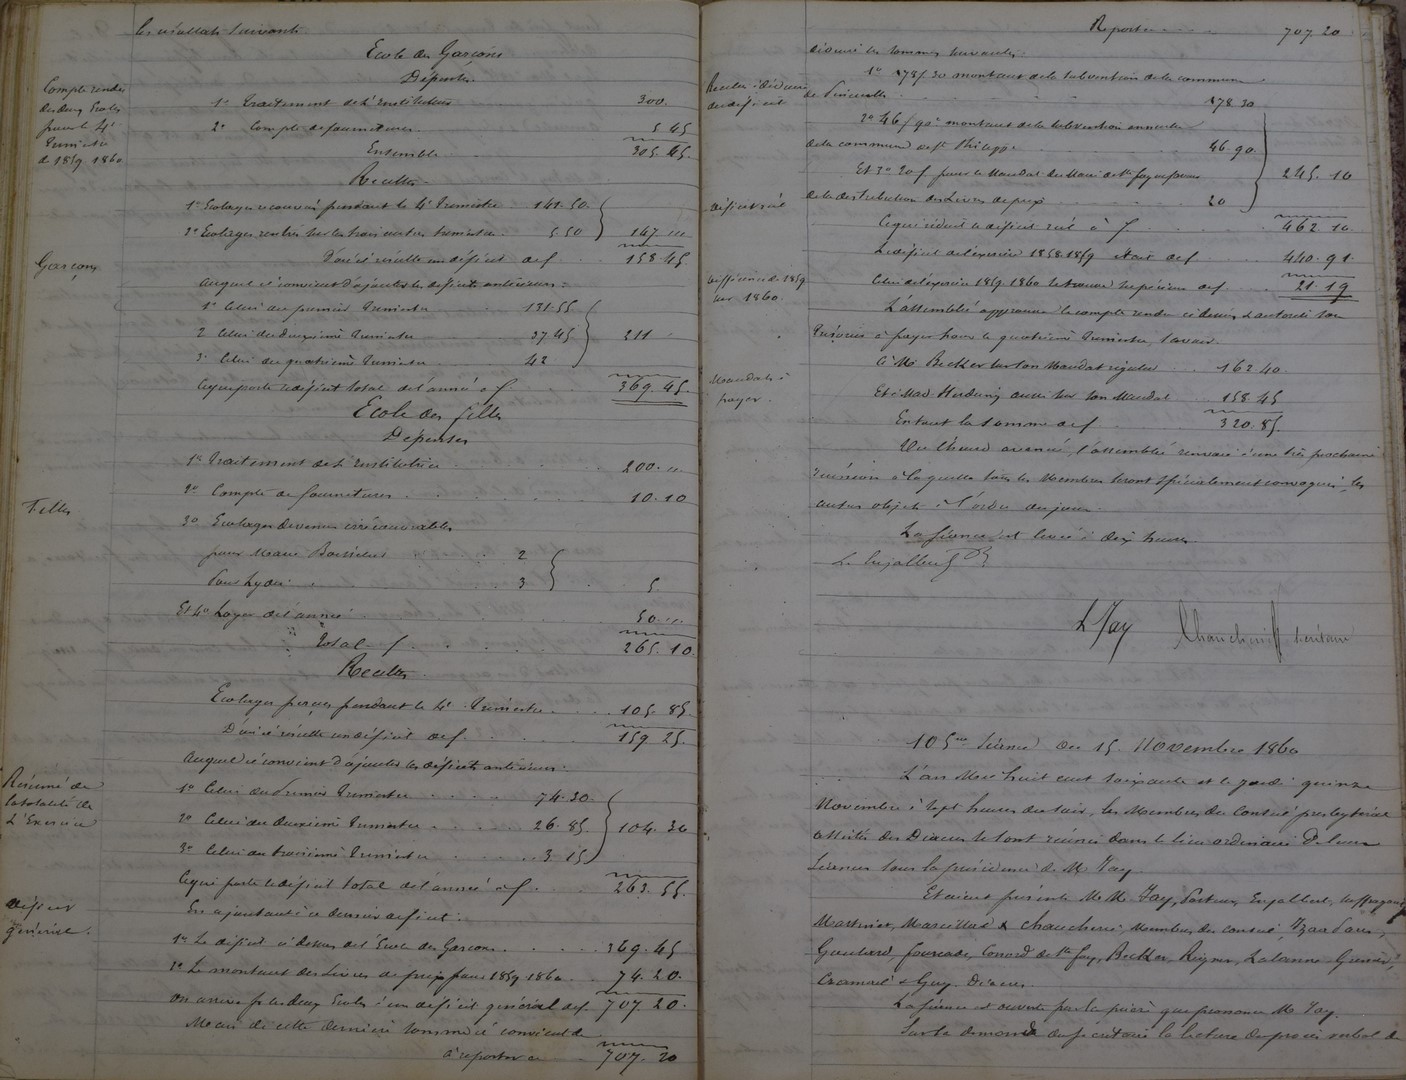 les résultats suivants
Ecole des Garçons
Dépenses
Compte rendu
des deux Ecoles
pour le 4e
Trimestre
de 1859 1860
1o Traitement de l'Instituteur 300.
2o Compte de fournitures 5 45
Ensemble 305. 45.
Recettes
1o Ecolages recouvrés pendant le 4e Trimestre 141. 50.
2o Ecolages rentrés sur les trois autres trimestres 5 50 147 "
Garçons
D'où il résulte un déficit de f 158 45
auquel il convient d'ajouter les déficits antérieurs :
1o Celui du premier Trimestre 131. 55
2 Celui du deuxième Trimestre 37. 45 211 "
3o Celui du quatrième Trimestre 42
Ce qui porte le déficit total de l'année à f 369. 45.
Ecole des filles
Dépenses
1o Traitement de l'Institutrice 200. "
2o Compte de fournitures 10. 10
Filles
3o Ecolages devenus irrécouvrables
pour Marie 2
3 5
Et 4o Loyer de l'année 50. "
Total f 265. 10
Recettes
Ecolages perçus pendant le 4e Trimestre 105. 85.
D'où il résulte un déficit de f. 159 25.
auquel il convient d'ajouter les déficits antérieurs :
Résumé de
la totalité de
l'Exercice
1o Celui du Premier Trimestre 74. 30.
2o Celui du deuxième Trimestre 26. 85. 104. 30
3o Celui du troisième Trimestre 3. 15
Ce qui porte le déficit total de l'année à f. 263. 55.
Déficit
général.
En ajoutant à ce dernier déficit :
1o Le déficit ci dessus de l'Ecole des Garçons 369. 45
2o Le montant des Livres de prix pour 1859 1860 74. 20.
on arrive pr les deux Ecoles à un déficit général de f 707. 20.
Mais de cette dernière somme il convient de
à reporter 707. 20
Report 707. 20
déduire les sommes suivantes,
Recettes à déduire
du déficit
1o 178 f 30 montant de la subvention de la commune
de Pineuilh 178 30
2o 46 f 90c montant de la subvention annuelle
de la commune de St Philippe 46. 90. 245. 10
Et 3o 20 f pour le Mandat du Maire de Ste Foy en faveur
de la distribution des Livres de prix 20
déficit réel
Ce qui réduit le déficit réel à f 462. 10.
Le déficit de l'exercice 1858. 1859 était de f 440. 91
différence de 1859
sur 1860.
Celui de l'exercice 1859. 1860 se trouve supérieur de f 21. 19
L'assemblée approuve le compte rendu ci dessus & autorise son
Trésorier à payer pour le quatrième Trimestre, savoir.
Mandats à
payer.
à M. Becker sur son Mandat régulier 162. 40.
Et à Mad. aussi sur son Mandat 158. 45
En tout la somme de f 320. 85.
Vu l'heure avancée, l'assemblée renvoie à une très prochaine
réunion à laquelle tous les Membres seront spécialement convoqués, les
autres objets à l'ordre du jour.
La séance est levée à dix heures
L. Enjalbert
L Fay Chaucherie secrétaire
105me Séance du 15 Novembre 1860
L'an Mil huit cent soixante et le jeudi quinze
Novembre à sept heures du soir, les Membres du Conseil presbytéral
assistés des Diacres se sont réunis dans le lieu ordinaire de leurs
séances sous la présidence de M. Fay.
Etaient présents MM. Fay, Pasteur, Enjalbert, suffragant,
Martinet, Marcillac & Chaucherie Membres du conseil,
fourcade, de Ste foy, Becker, Lalanne
& Guy Diacres.
La séance est ouverte par la prière que prononce M. Fay.
Sur la demande du secrétaire la lecture du procès verbal de